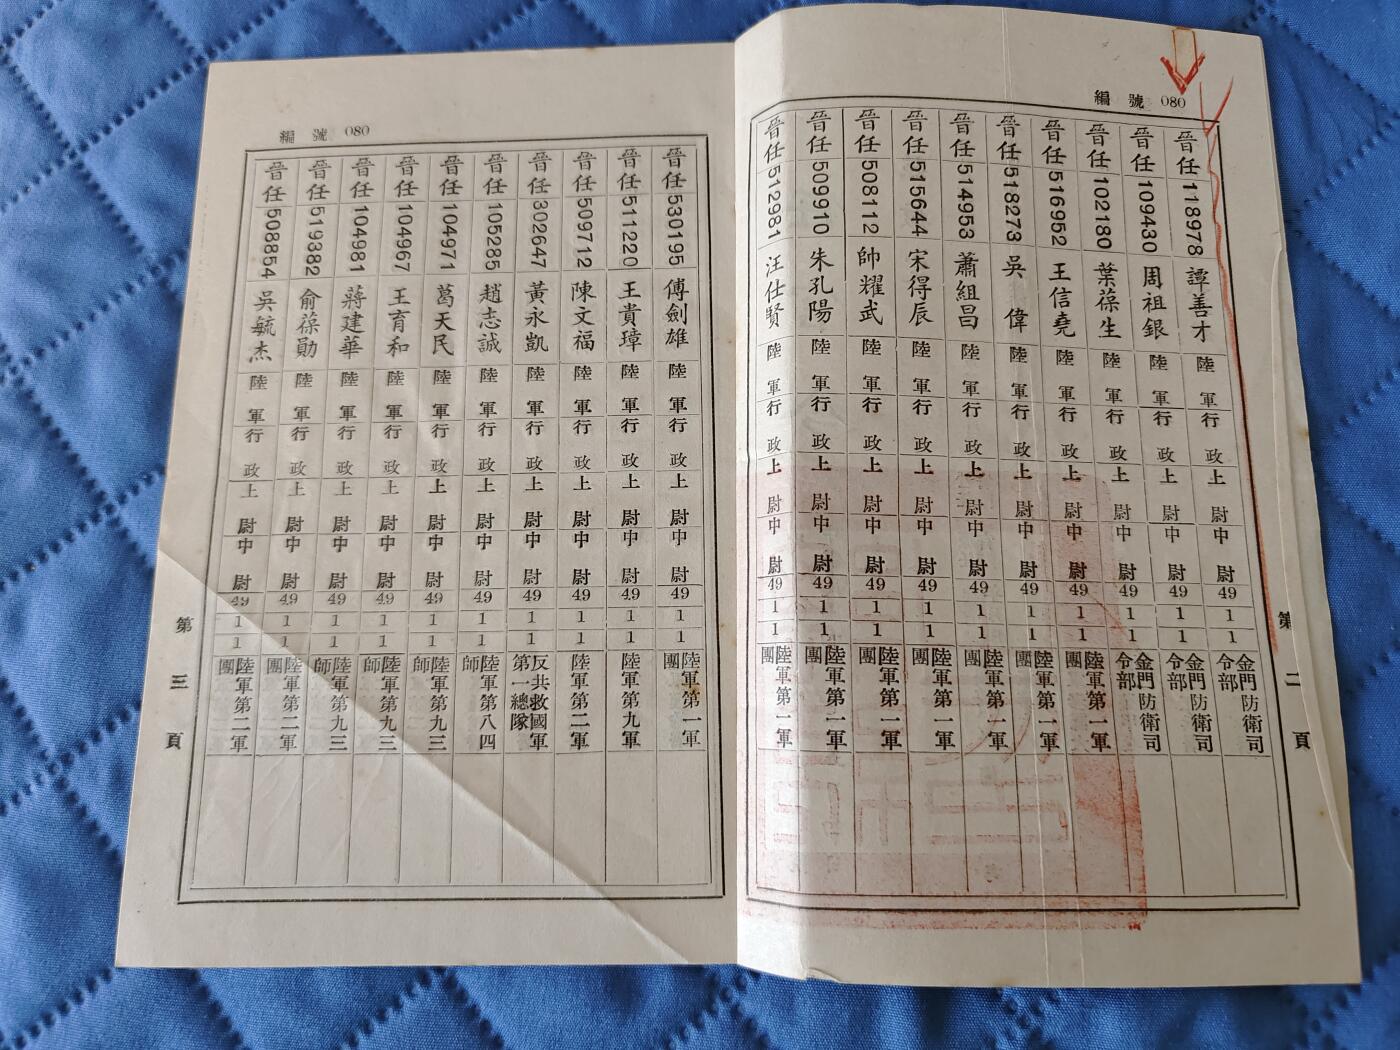 編號 080
晉任 118978 譚善才 陸軍 行政 上尉 中尉 49 1 1 金門防衛司令部
晉任 109430 周祖銀 陸軍 行政 上尉 中尉 49 1 1 金門防衛司令部
晉任 102180 葉葆生 陸軍 行政 上尉 中尉 49 1 1 金門防衛司令部
晉任 516952 王信堯 陸軍 行政 上尉 中尉 49 1 1 陸軍第一軍團
晉任 518273 吳偉 陸軍 行政 上尉 中尉 49 1 1 陸軍第一軍團
晉任 514953 蕭組昌 陸軍 行政 上尉 中尉 49 1 1 陸軍第一軍團
晉任 515644 宋得辰 陸軍 行政 上尉 中尉 49 1 1 陸軍第一軍團
晉任 508112 帥耀武 陸軍 行政 上尉 中尉 49 1 1 陸軍第一軍團
晉任 509910 朱孔陽 陸軍 行政 上尉 中尉 49 1 1 陸軍第一軍團
晉任 512981 汪仕賢 陸軍 行政 上尉 中尉 49 1 1 陸軍第一軍團
第二頁
編號 080
晉任 530195 傅劍雄 陸軍 行政 上尉 中尉 49 1 1 陸軍第一軍團
晉任 511220 王貴璋 陸軍 行政 上尉 中尉 49 1 1 陸軍第九軍
晉任 509712 陳文福 陸軍 行政 上尉 中尉 49 1 1 陸軍第二軍
晉任 302647 黃永凱 陸軍 行政 上尉 中尉 49 1 1 反共救國軍第一總隊
晉任 105285 趙志誠 陸軍 行政 上尉 中尉 49 1 1 陸軍第八四師
晉任 104971 葛天民 陸軍 行政 上尉 中尉 49 1 1 陸軍第九三師
晉任 104967 王育和 陸軍 行政 上尉 中尉 49 1 1 陸軍第九三師
晉任 104981 蔣建華 陸軍 行政 上尉 中尉 49 1 1 陸軍第九三師
晉任 519382 俞葆勛 陸軍 行政 上尉 中尉 49 1 1 陸軍第二軍團
晉任 508854 吳毓杰 陸軍 行政 上尉 中尉 49 1 1 陸軍第二軍團
第三頁